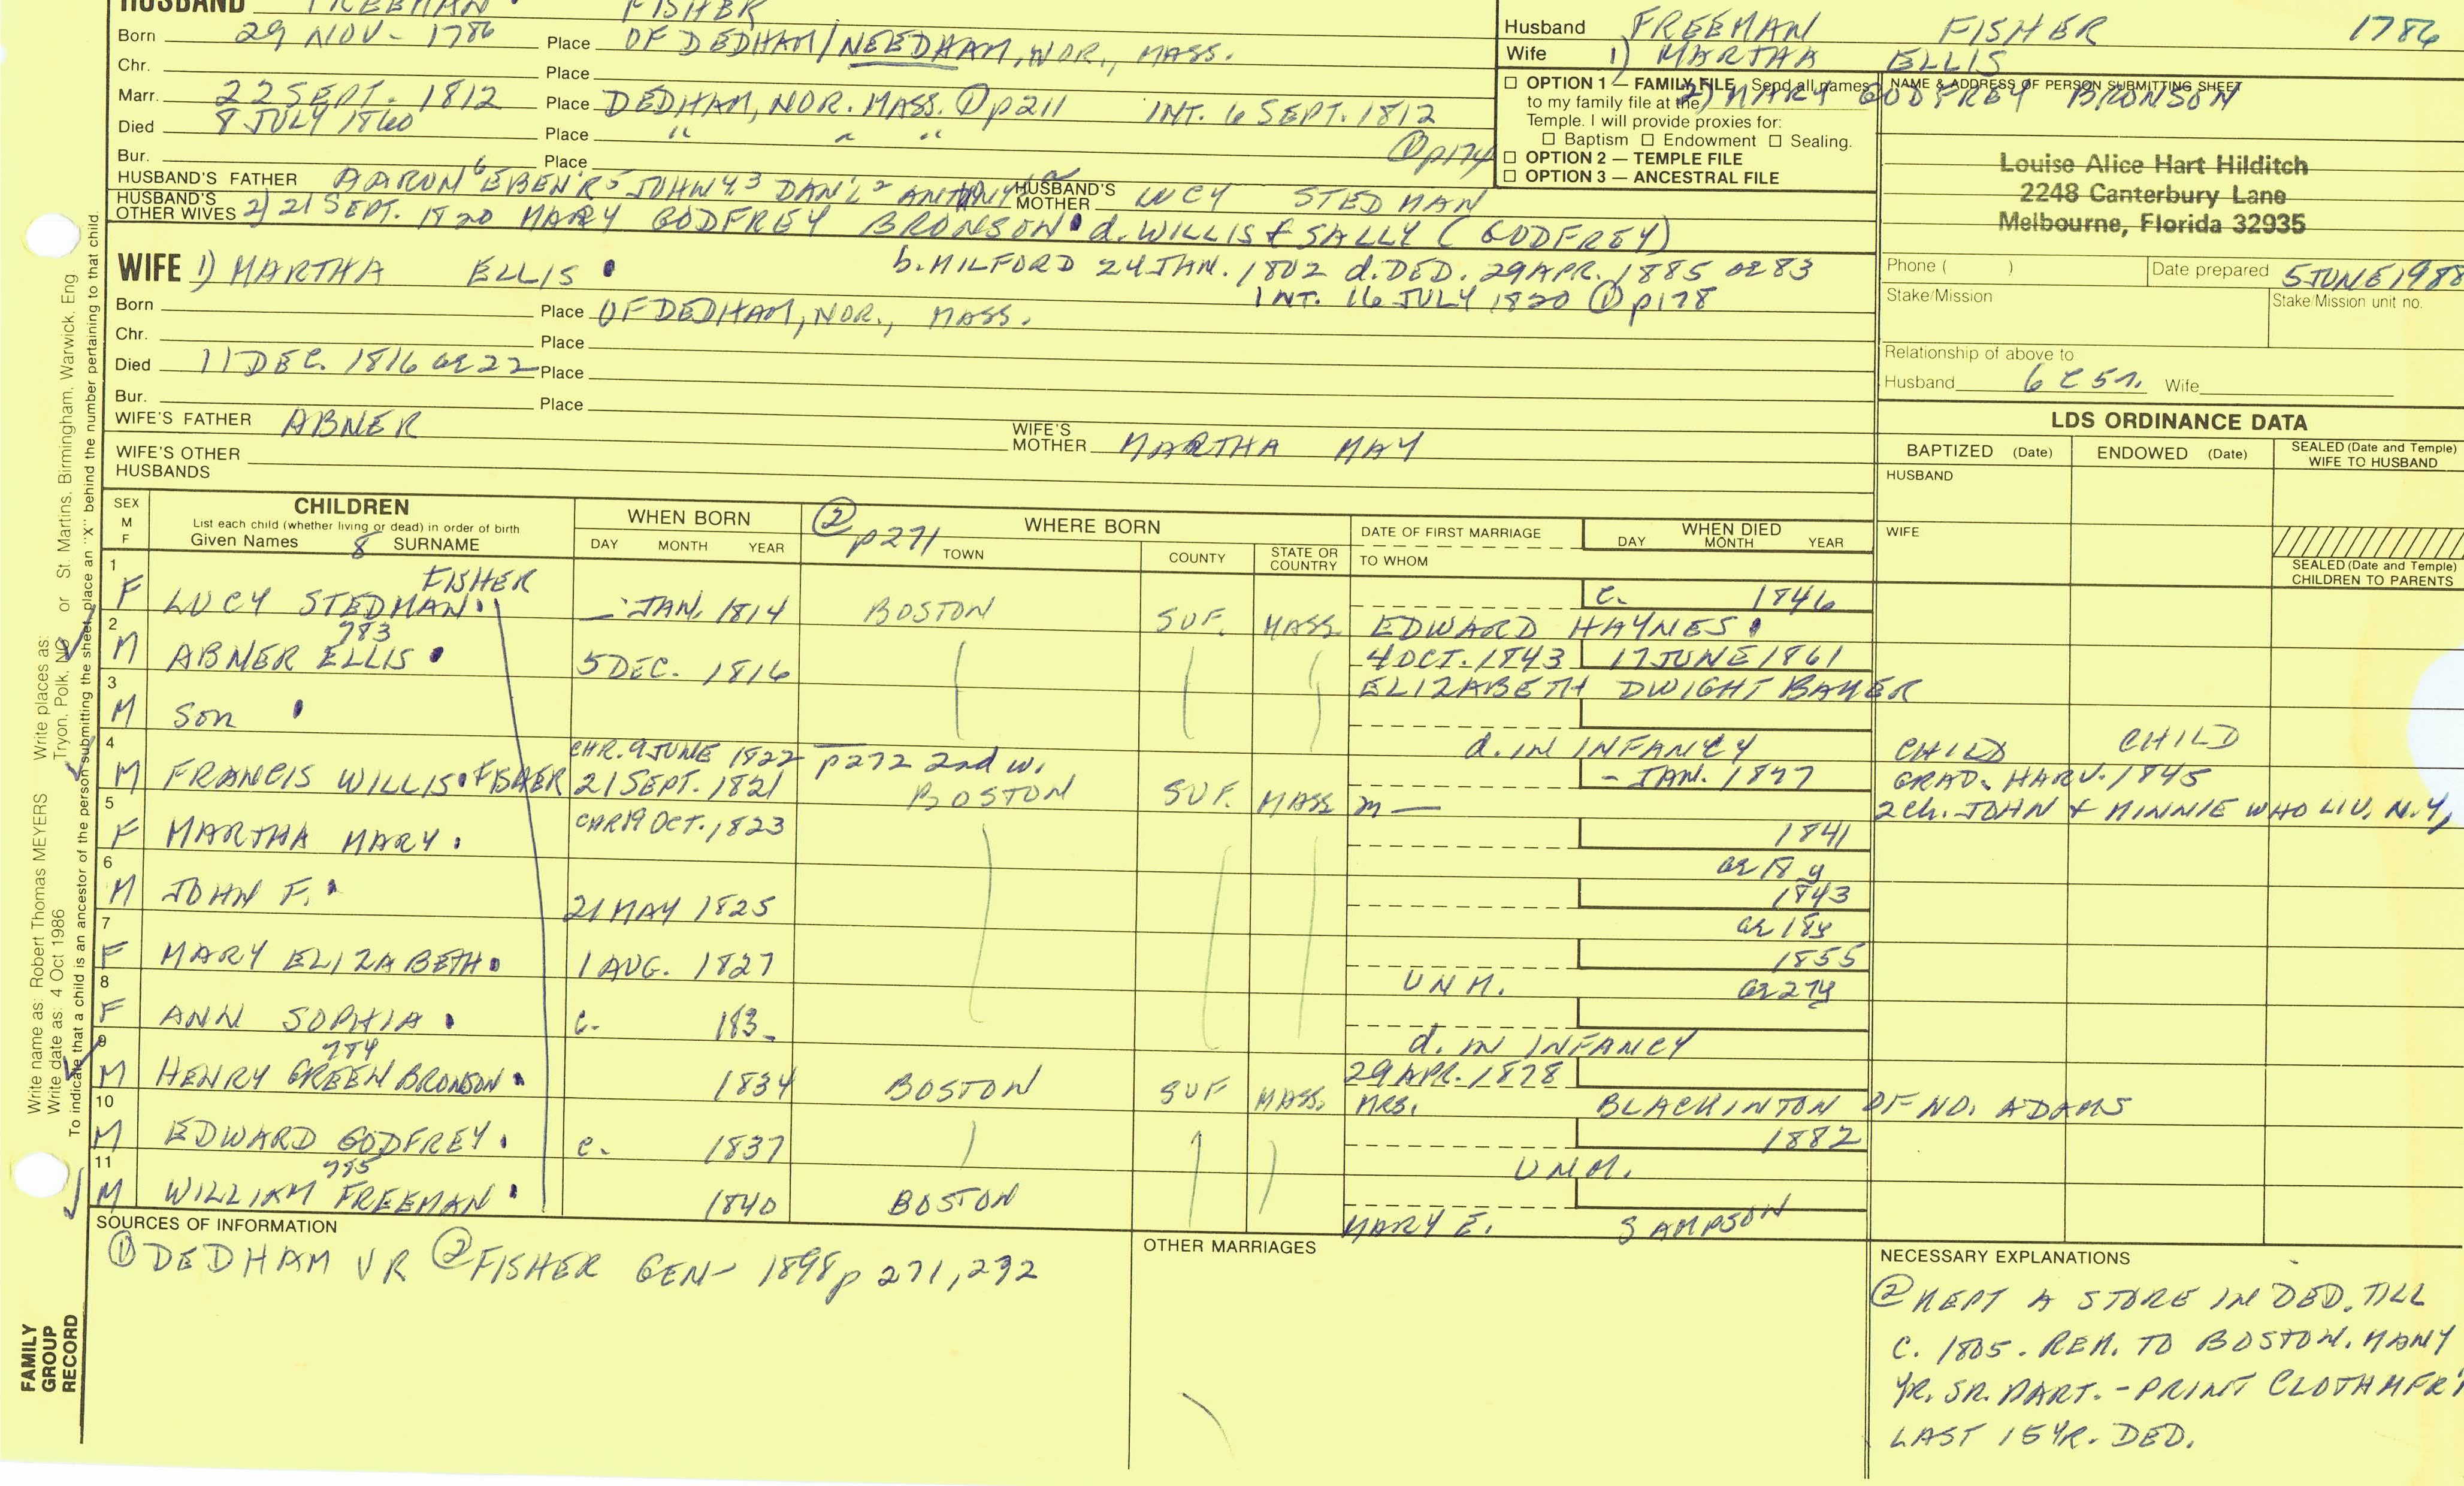 HUSBAND FREEMAN FISHER
Born 29 NOV- 1786 Place OF DEDHAM/NEEDHAM, NOR., MASS.
Chr. Place
Marr. 22 SEPT. 1812 Place DEDHAM, NOR. MASS. ① p211 INT. 6 SEPT. 1812
① p174
Died 8 JULY 1860 Place " " "
Bur. Place
HUSBAND'S FATHER AARON 6 EBEN'R 5 JOHN 4,3 DAN'L 2 ANTHONY HUSBAND'S MOTHER LUCY STEDMAN
HUSBAND'S OTHER WIVES 2) 21 SEPT. 1820 MARY GODFREY BRONSON d. WILLIS & SALLY (GODFREY)
b. MILFORD 24 JAN. 1802 d. DED. 29 APR. 1885 ae 83
INT. 16 JULY 1820 ① p178
WIFE 1) MARTHA ELLIS
Born Place OF DEDHAM, NOR., MASS.
Chr. Place
Died 11 DEC. 1816 ae 22 Place
Bur. Place
WIFE'S FATHER ABNER WIFE'S MOTHER MARTHA MAY
WIFE'S OTHER HUSBANDS
Husband FREEMAN FISHER 1786
Wife 1) MARTHA ELLIS
2) MARY GODFREY BRONSON
☐ OPTION 1 — FAMILY FILE Send all names
to my family file at the
Temple. I will provide proxies for:
☐ Baptism ☐ Endowment ☐ Sealing.
☐ OPTION 2 — TEMPLE FILE
☐ OPTION 3 — ANCESTRAL FILE
NAME & ADDRESS OF PERSON SUBMITTING SHEET
Louise Alice Hart Hilditch
2248 Canterbury Lane
Melbourne, Florida 32935
Phone ( ) Date prepared 5 JUNE 1988
Stake/Mission Stake/Mission unit no.
Relationship of above to
Husband 6 C 5 r. Wife
LDS ORDINANCE DATA
BAPTIZED (Date) ENDOWED (Date) SEALED (Date and Temple) WIFE TO HUSBAND
HUSBAND
WIFE
SEALED (Date and Temple) CHILDREN TO PARENTS
SEX M F
CHILDREN
List each child (whether living or dead) in order of birth
Given Names 8 SURNAME
WHEN BORN
DAY MONTH YEAR
② p271 WHERE BORN
TOWN COUNTY STATE OR COUNTRY
DATE OF FIRST MARRIAGE
TO WHOM
WHEN DIED
DAY MONTH YEAR
1 F LUCY STEDMAN FISHER — JAN. 1814 BOSTON SUF. MASS c. 1846
EDWARD HAYNES
2 M 783 ABNER ELLIS 5 DEC. 1816 4 OCT. 1843 17 JUNE 1861
ELIZABETH DWIGHT BAKER
3 M Son
d. IN INFANCY CHILD CHILD
4 M FRANCIS WILLIS FISHER CHR. 9 JUNE 1822 p272 2nd w. - JAN. 1877 GRAD. HARV. 1845
21 SEPT. 1821 BOSTON SUF. MASS m — 2 ch. JOHN & MINNIE WHO LIV. N.Y,
5 F MARTHA MARY CHR 19 OCT. 1823 1841
ae 18 y
6 M JOHN F. 21 MAY 1825 1843
ae 18y
7 F MARY ELIZABETH 1 AUG. 1827 1855
UNM. ae 27y
8 F ANN SOPHIA c. 183_
d. IN INFANCY
9 M 784 HENRY GREEN BRONSON 1834 BOSTON SUF MASS. 29 APR. 1878
MRS. BLACKINTON OF NO. ADAMS
10 M EDWARD GODFREY c. 1837 1882
UNM.
11 M 785 WILLIAM FREEMAN 1840 BOSTON
MARY E. SAMPSON
SOURCES OF INFORMATION
① DEDHAM VR ② FISHER GEN- 1898 p 271, 272
OTHER MARRIAGES
NECESSARY EXPLANATIONS
② KEPT A STORE IN DED. TILL
C. 1805. REM. TO BOSTON. MANY
YR. SR. PART. - PRINT CLOTH MFR'
LAST 15 YR. DED.
Write name as: Robert Thomas MEYERS Write places as:
Write date as: 4 Oct 1986 Tryon, Polk, NC or St. Martins, Birmingham, Warwick, Eng
To indicate that a child is an ancestor of the person submitting the sheet, place an "X" behind the number pertaining to that child.
FAMILY
GROUP
RECORD